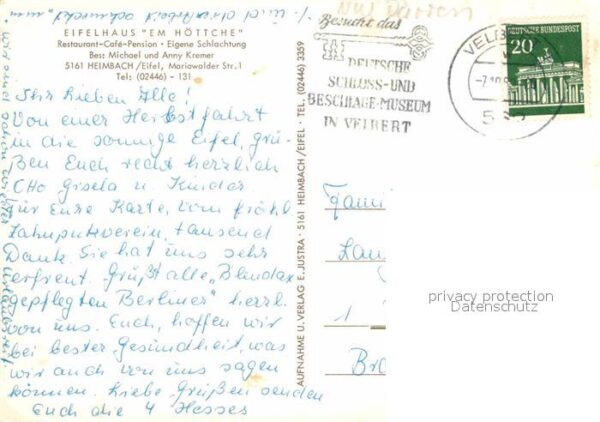 EIFELHAUS "EM HÖTTCHE"
Restaurant-Café-Pension · Eigene Schlachtung
Bes: Michael und Anny Kremer
5161 HEIMBACH/Eifel, Mariawalder Str.1
Tel: (02446) - 131
Ihr lieben Alle!
Von einer Herbstfahrt
in die sonnige Eifel, grü-
ßen Euch recht herzlich
Otto Gisela u. Kinder.
Für Eure Karte, vom fröhl.
Zahnputzverein, tausend
Dank. Sie hat uns sehr
erfreut. Grüßt alle „Blendax
gepflegten Berliner" herzl.
von uns. Euch, hoffen wir
bei bester Gesundheit, was
wir auch von uns sagen
können. Liebe Grüßen senden
Euch die 4 Hesses
AUFNAHME U. VERLAG E. JUSTRA · 5161 HEIMBACH/EIFEL · TEL. (02446) 3359
Besucht das
DEUTSCHE
SCHLOSS- UND
BESCHLÄGE-MUSEUM
IN VELBERT
VELB
DEUTSCHE BUNDESPOST
20
Fami
1
privacy protection
Datenschutz